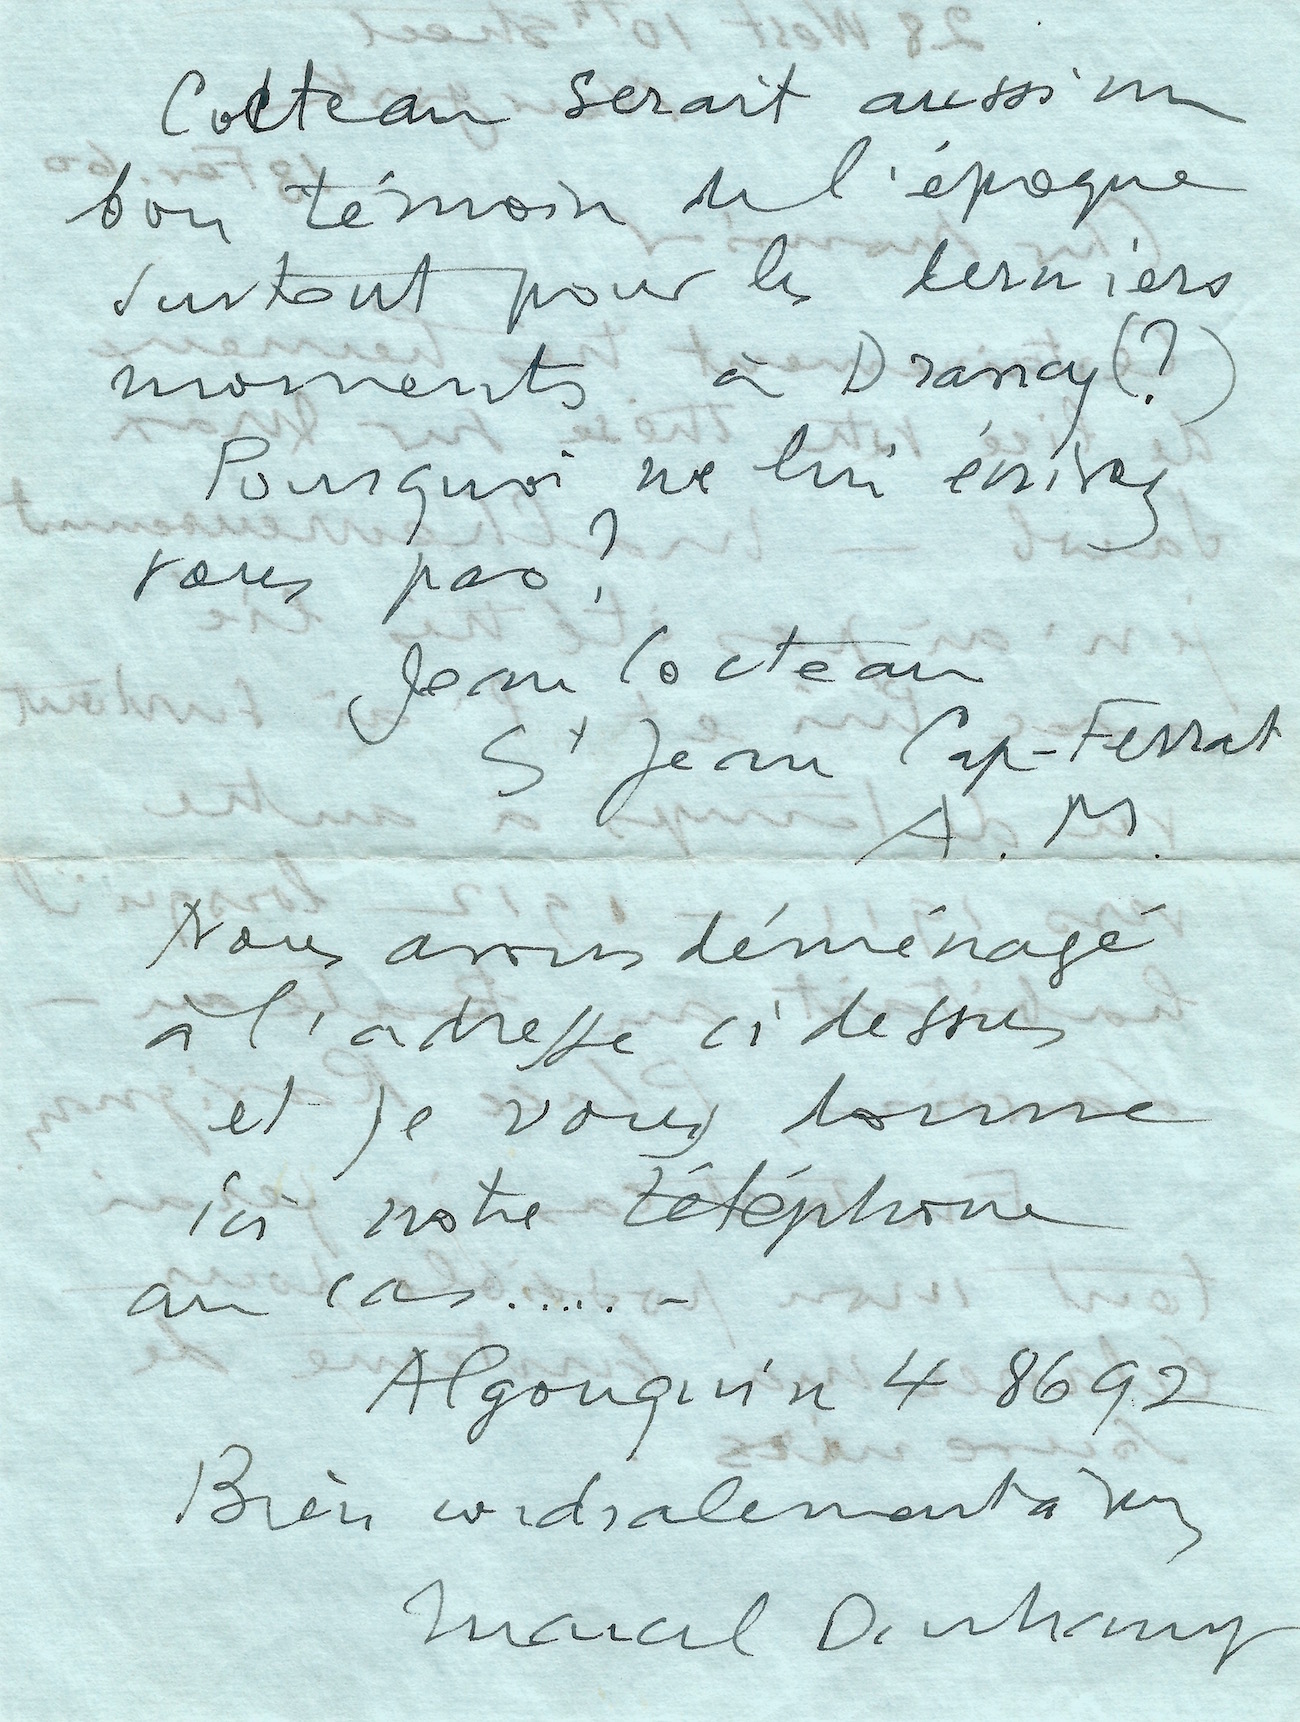 Cocteau serait aussi un
bon témoin de l'époque
surtout pour les derniers
moments à Drancy (?)
Pourquoi ne lui écrivez
vous pas?
Jean Cocteau
St Jean Cap-Ferrat
A. M.
Nous avons déménagé
à l'adresse ci dessus
et je vous donne
ici notre téléphone
au cas...... -
Algonquin 4 8692
Bien cordialement à vous
Marcel Duchamp